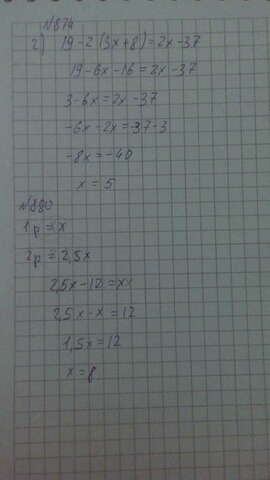 №874
2) 19-2(3x+8)=2x-37
19-6x-16=2x-37
3-6x=2x-37
-6x-2x=-37-3
-8x=-40
x=5
№880
1р=x
2р=2,5x
2,5x-12=x
2,5x-x=12
1,5x=12
x=8